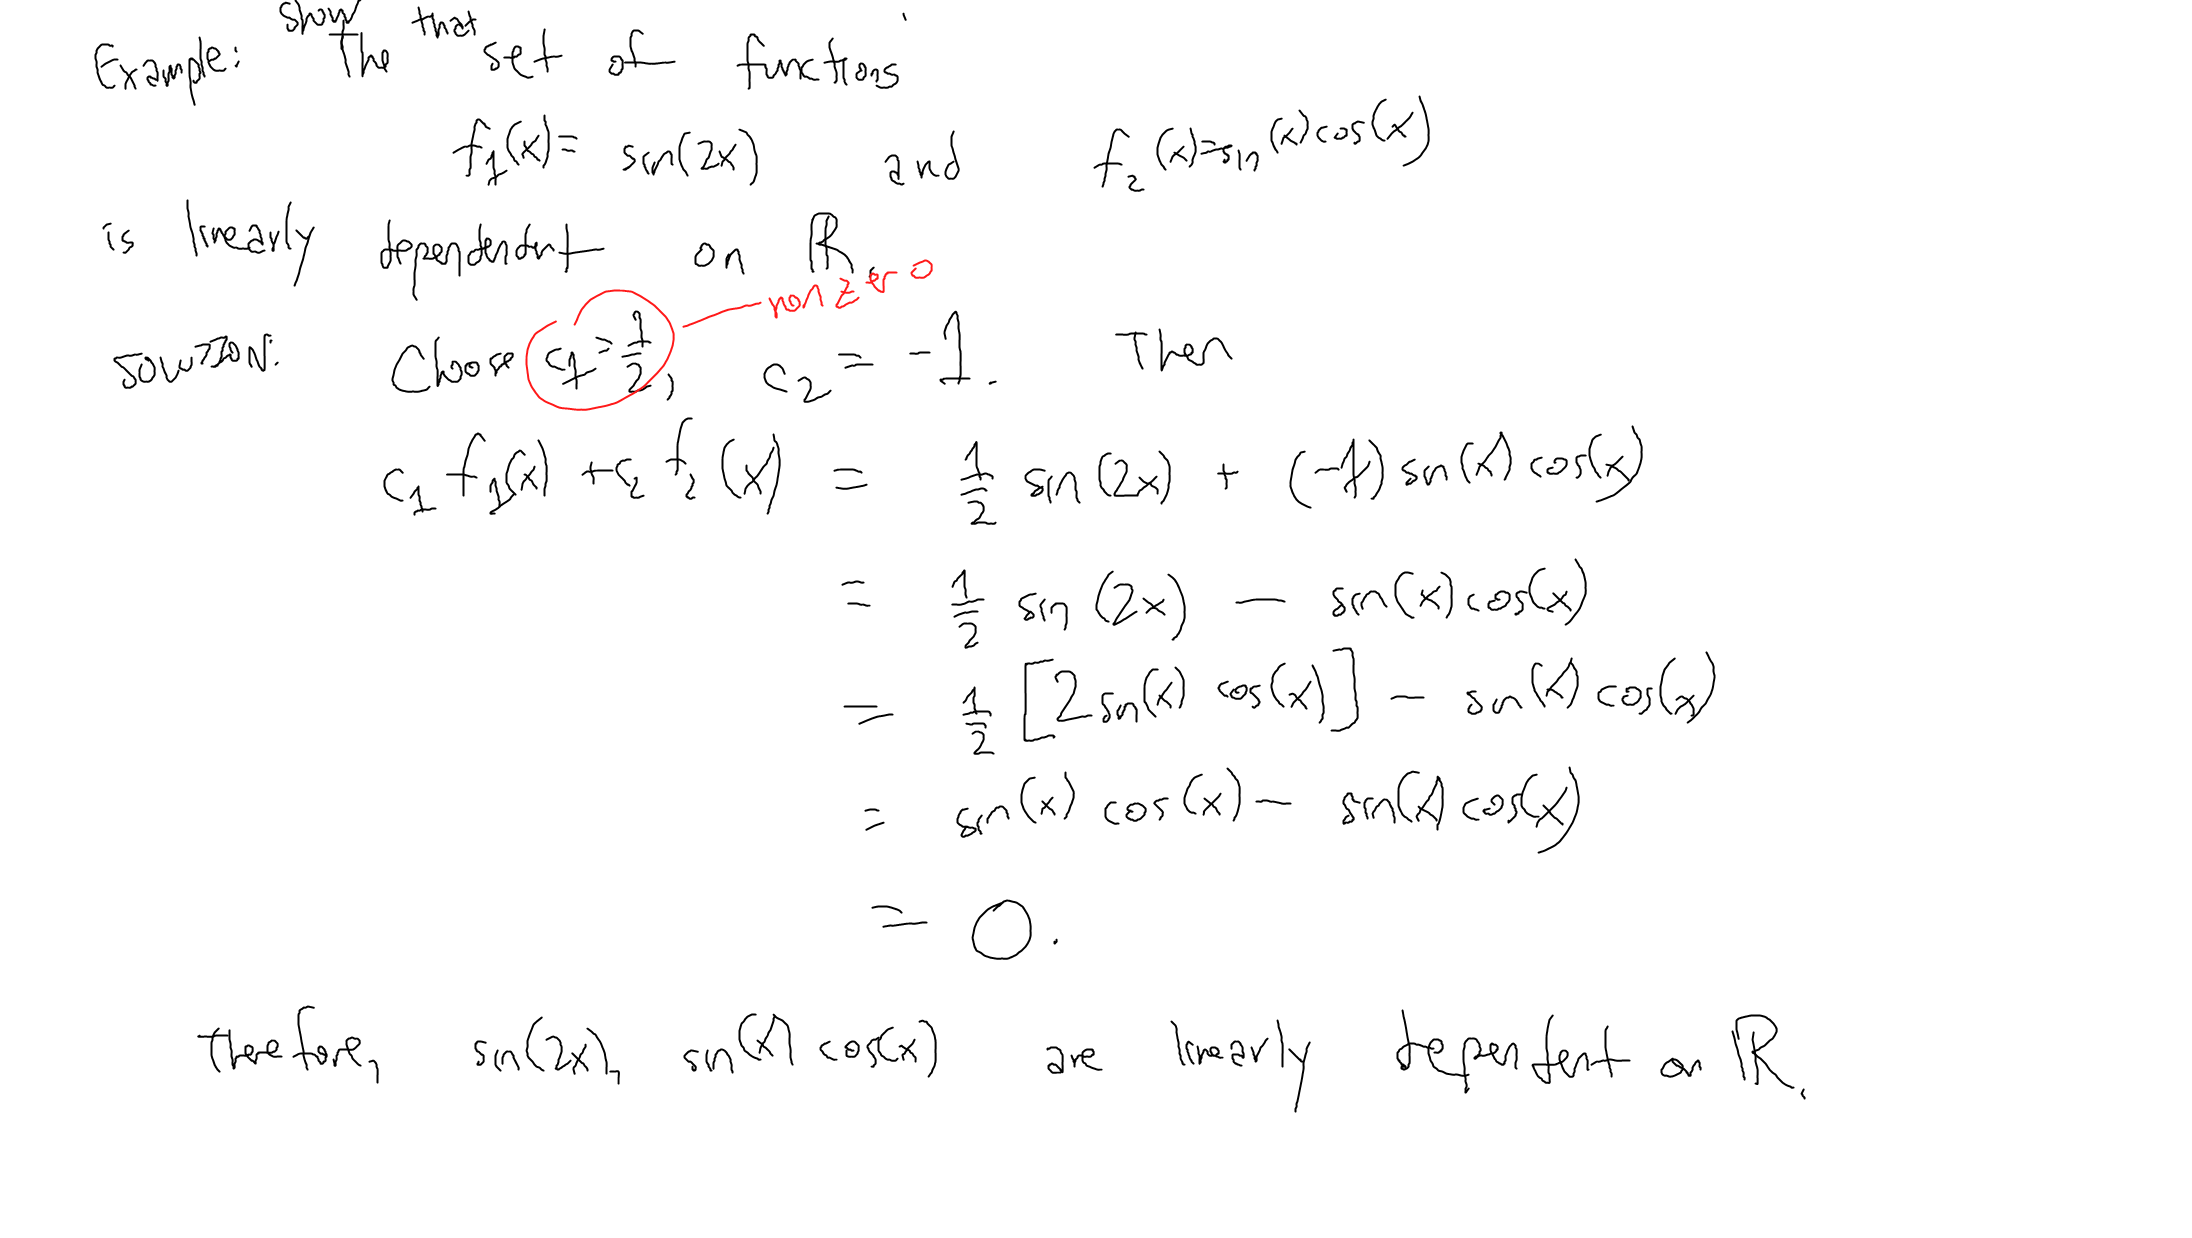 Example: show that the set of functions
f₁(x) = sin(2x) and f₂(x) = sin(x) cos(x)
is linearly dependendent on ℝ.
nonzero
SOLUTION: Choose c₁ = 1/2, c₂ = -1. Then
c₁ f₁(x) + c₂ f₂(x) = 1/2 sin(2x) + (-1) sin(x) cos(x)
= 1/2 sin(2x) - sin(x) cos(x)
= 1/2 [2 sin(x) cos(x)] - sin(x) cos(x)
= sin(x) cos(x) - sin(x) cos(x)
= 0.
Therefore, sin(2x), sin(x) cos(x) are linearly dependent on ℝ.